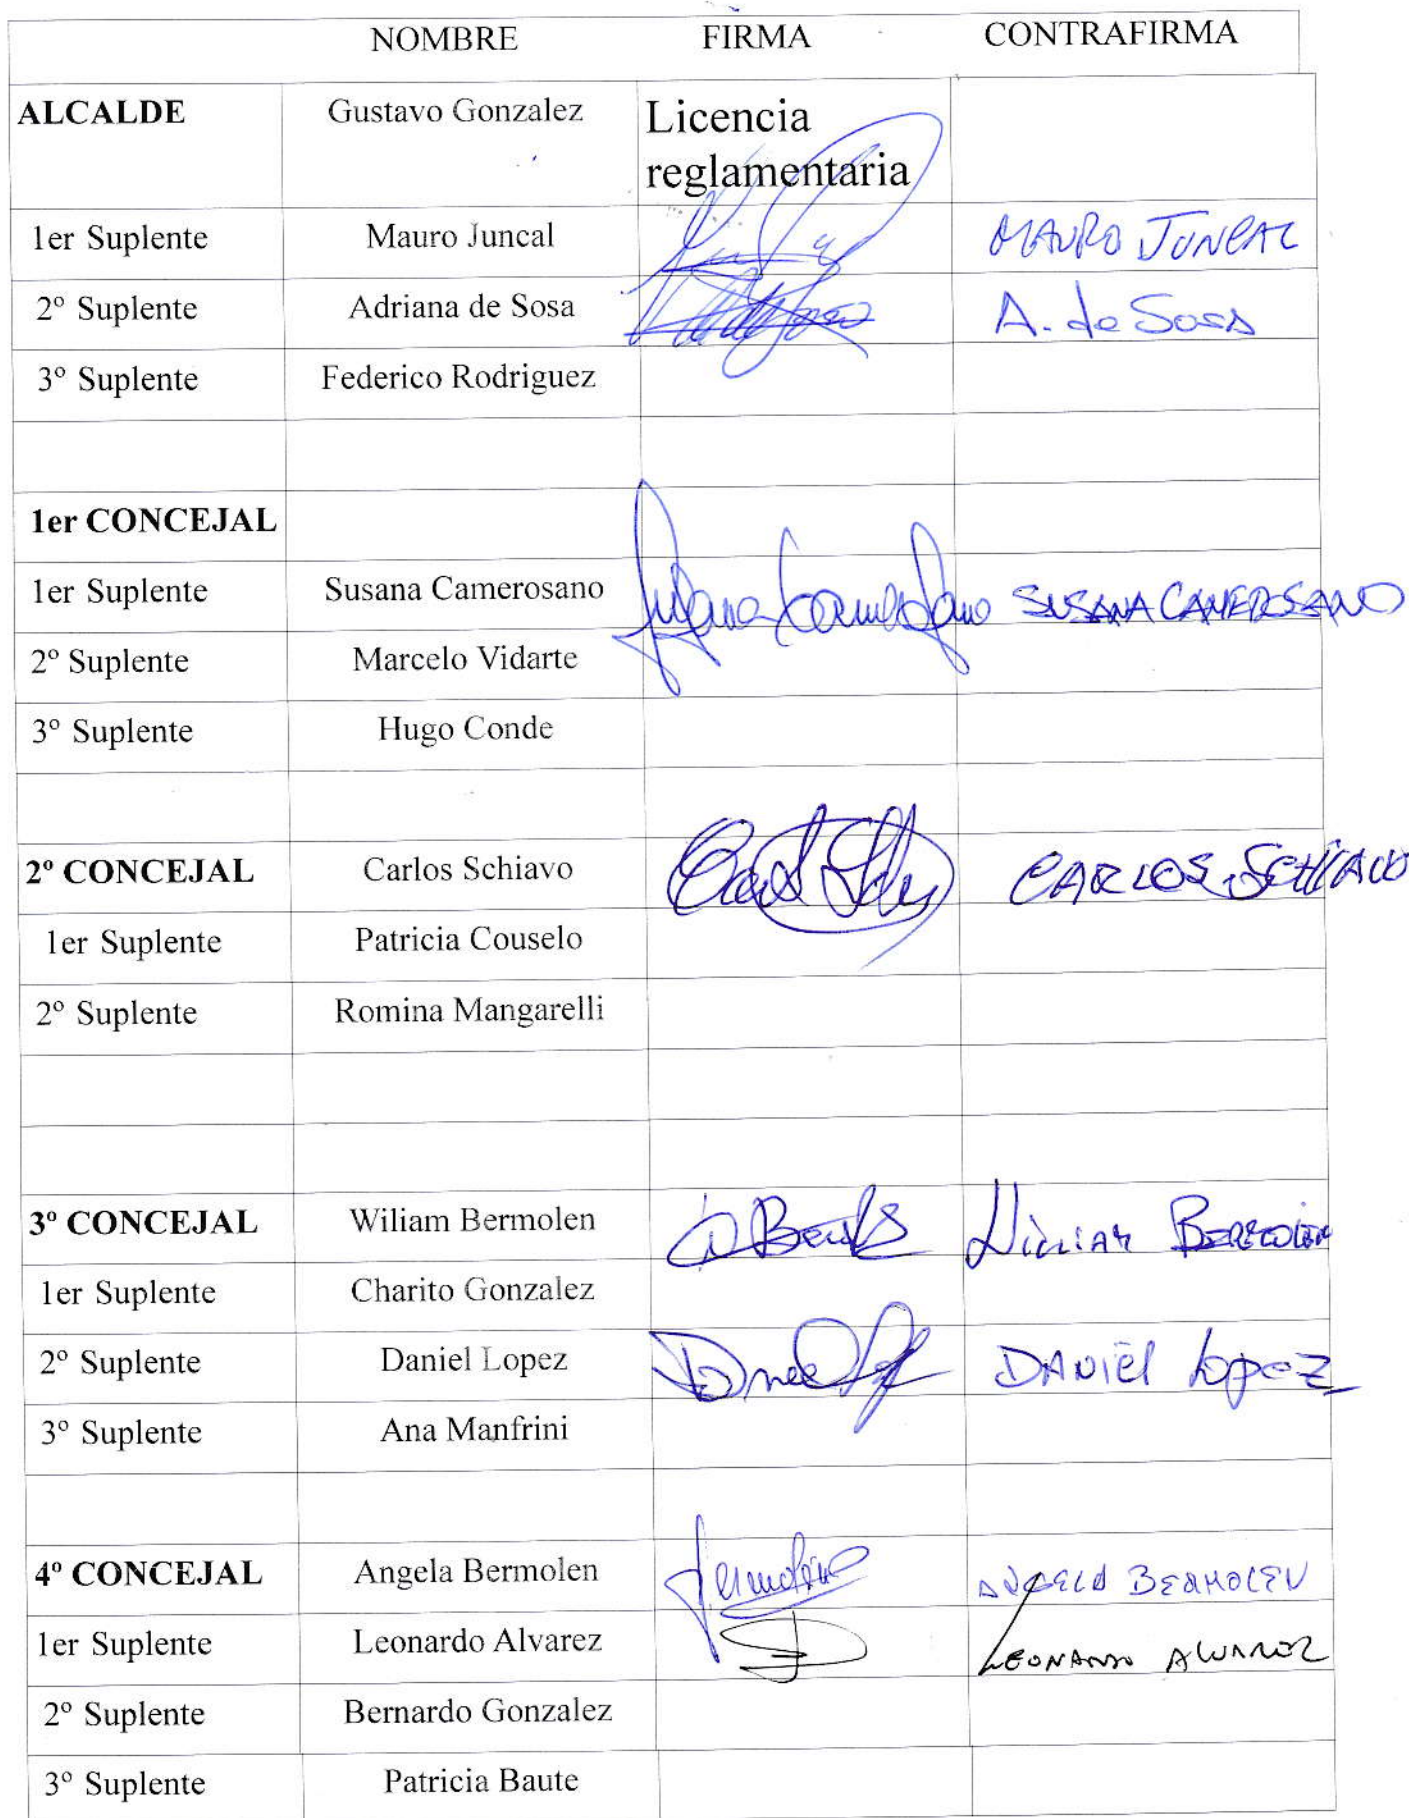 NOMBRE FIRMA CONTRAFIRMA
ALCALDE Gustavo Gonzalez Licencia
reglamentaria
1er Suplente Mauro Juncal MAURO JUNCAL
2º Suplente Adriana de Sosa A. de Sosa
3º Suplente Federico Rodriguez
1er CONCEJAL
1er Suplente Susana Camerosano Susana Camerosano SUSANA CAMEROSANO
2º Suplente Marcelo Vidarte
3º Suplente Hugo Conde
2º CONCEJAL Carlos Schiavo CARLOS SCHIAVO
1er Suplente Patricia Couselo
2º Suplente Romina Mangarelli
3º CONCEJAL Wiliam Bermolen William BERMOLEN
1er Suplente Charito Gonzalez
2º Suplente Daniel Lopez DANIEL Lopez
3º Suplente Ana Manfrini
4º CONCEJAL Angela Bermolen ANGELA BERMOLEN
1er Suplente Leonardo Alvarez LEONARDO ALVAREZ
2º Suplente Bernardo Gonzalez
3º Suplente Patricia Baute